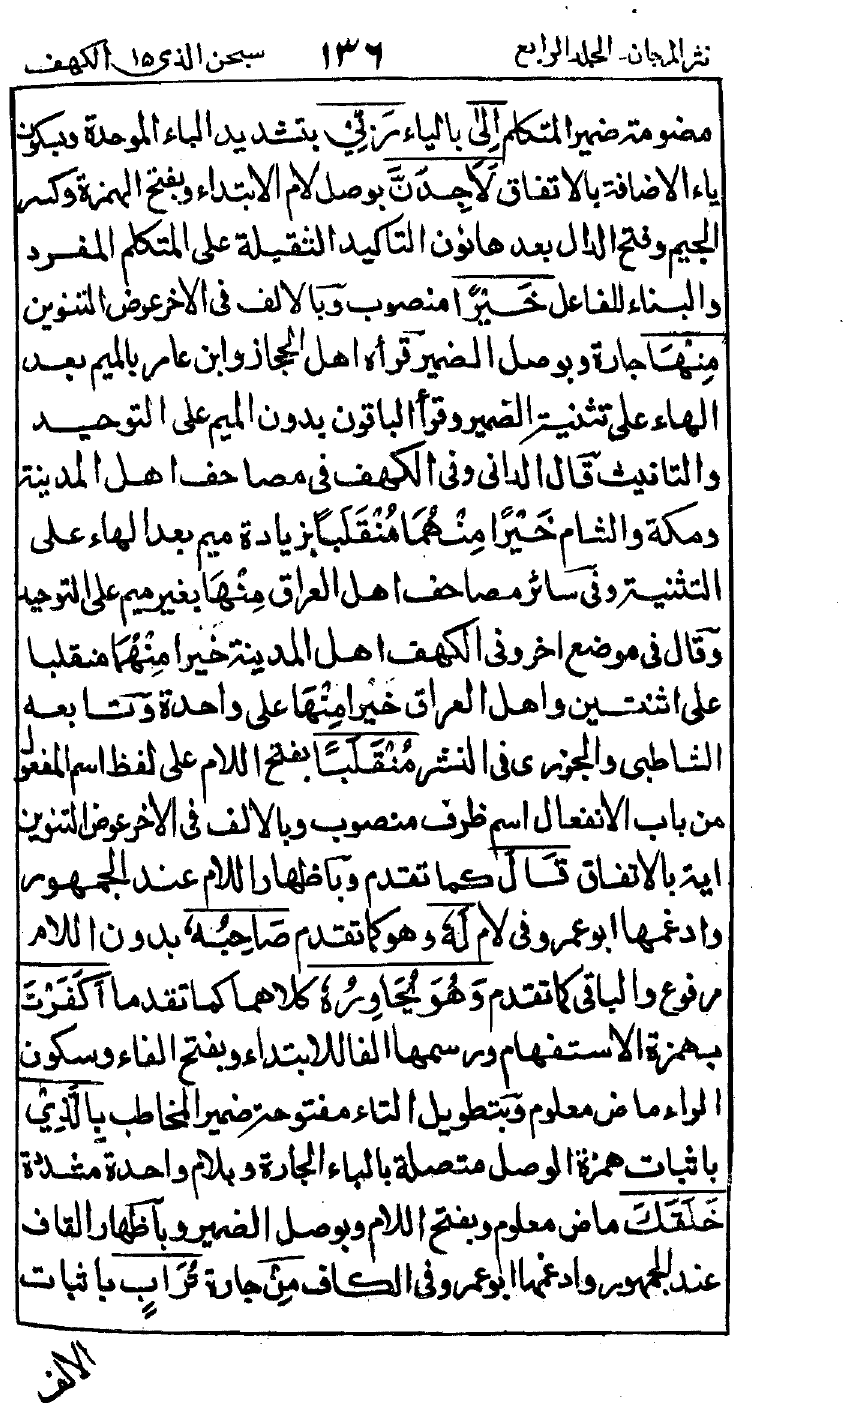 نثر المرجان۔ المجلد الرابع ١٣٦ سبحن الذی ١٥ الكهف
مضومة ضمير المتكلم إِلىٰ بالياء رَبِّيْ بتشديد الباء الموحدة وبسكون
ياء الاضافة بالاتفاق لَأَجِدَنَّ بوصل لام الابتداء وبفتح الهمزة وكسر
الجيم وفتح الدال بعدها نون التاكيد الثقيلة على المتكلم المفرد
والبناء للفاعل خَيْرًا منصوب وبالالف فى الاخر عوض التنوين
مِنْهَا جارة وبوصل الضمير قرأه اهل الحجاز وابن عامر بالميم بعد
الهاء على تثنية الضمير وقرأ الباقون بدون الميم على التوحيد
والتانيث قال الدانى وفى الكهف فى مصاحف اهل المدينة
ومكة والشام خَيْرًا مِنْهُمَا مُنْقَلَبًا بزيادة ميم بعد الهاء على
التثنية وفى سائر مصاحف اهل العراق مِنْهَا بغير ميم على التوحيد
وقال فى موضع اخر وفى الكهف اهل المدينة خيرا مِنْهُمَا منقلبا
على اثنتين واهل العراق خَيْرا مِنْهَا على واحدة وتابعه
الشاطبى والجزرى فى النشر مُنْقَلَبًا بفتح اللام على لفظ اسم المفعول
من باب الانفعال اسم ظرف منصوب وبالالف فى الاخر عوض التنوين
اية بالاتفاق قَالَ كما تقدم وباظهار اللام عند الجمهور
وادغمها ابو عمرو فى لام لَهٗ وهو كما تقدم صَاحِبُهٗ بدون اللام
مرفوع والباقى كما تقدم وَهُوَ يُحَاوِرُهٗ كلاهما كما تقدما أَكَفَرْتَ
بهمزة الاستفهام ورسمها الفا للابتداء وبفتح الفاء وسكون
الراء ماض معلوم وبتطويل التاء مفتوحة ضمير المخاطب بِالَّذِيْ
باثبات همزة الوصل متصلة بالباء الجارة وبلام واحدة مشددة
خَلَقَكَ ماض معلوم وبفتح اللام وبوصل الضمير وباظهار القاف
عند الجمهور وادغمها ابو عمرو فى الكاف مِنْ جارة تُرَابٍ باثبات
الالف